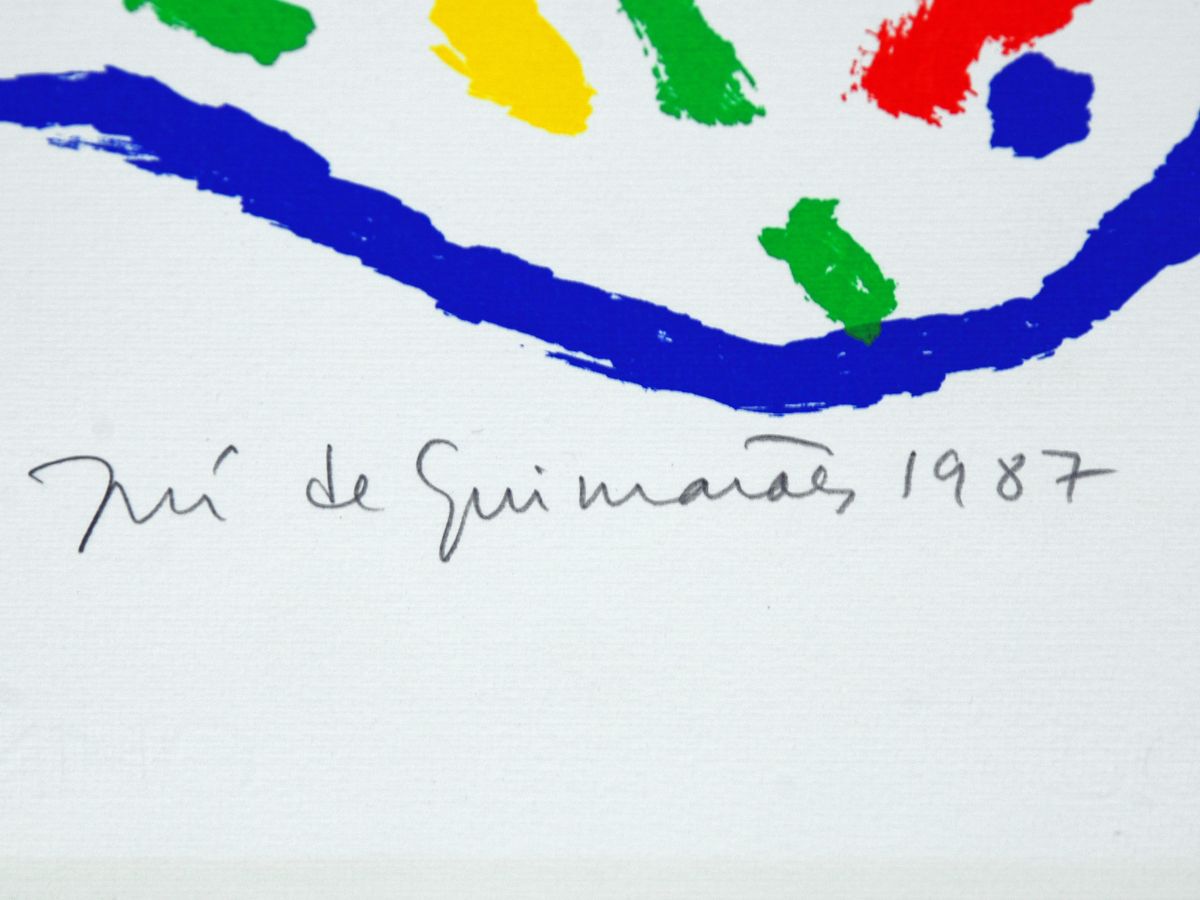 José de Guimarães 1987